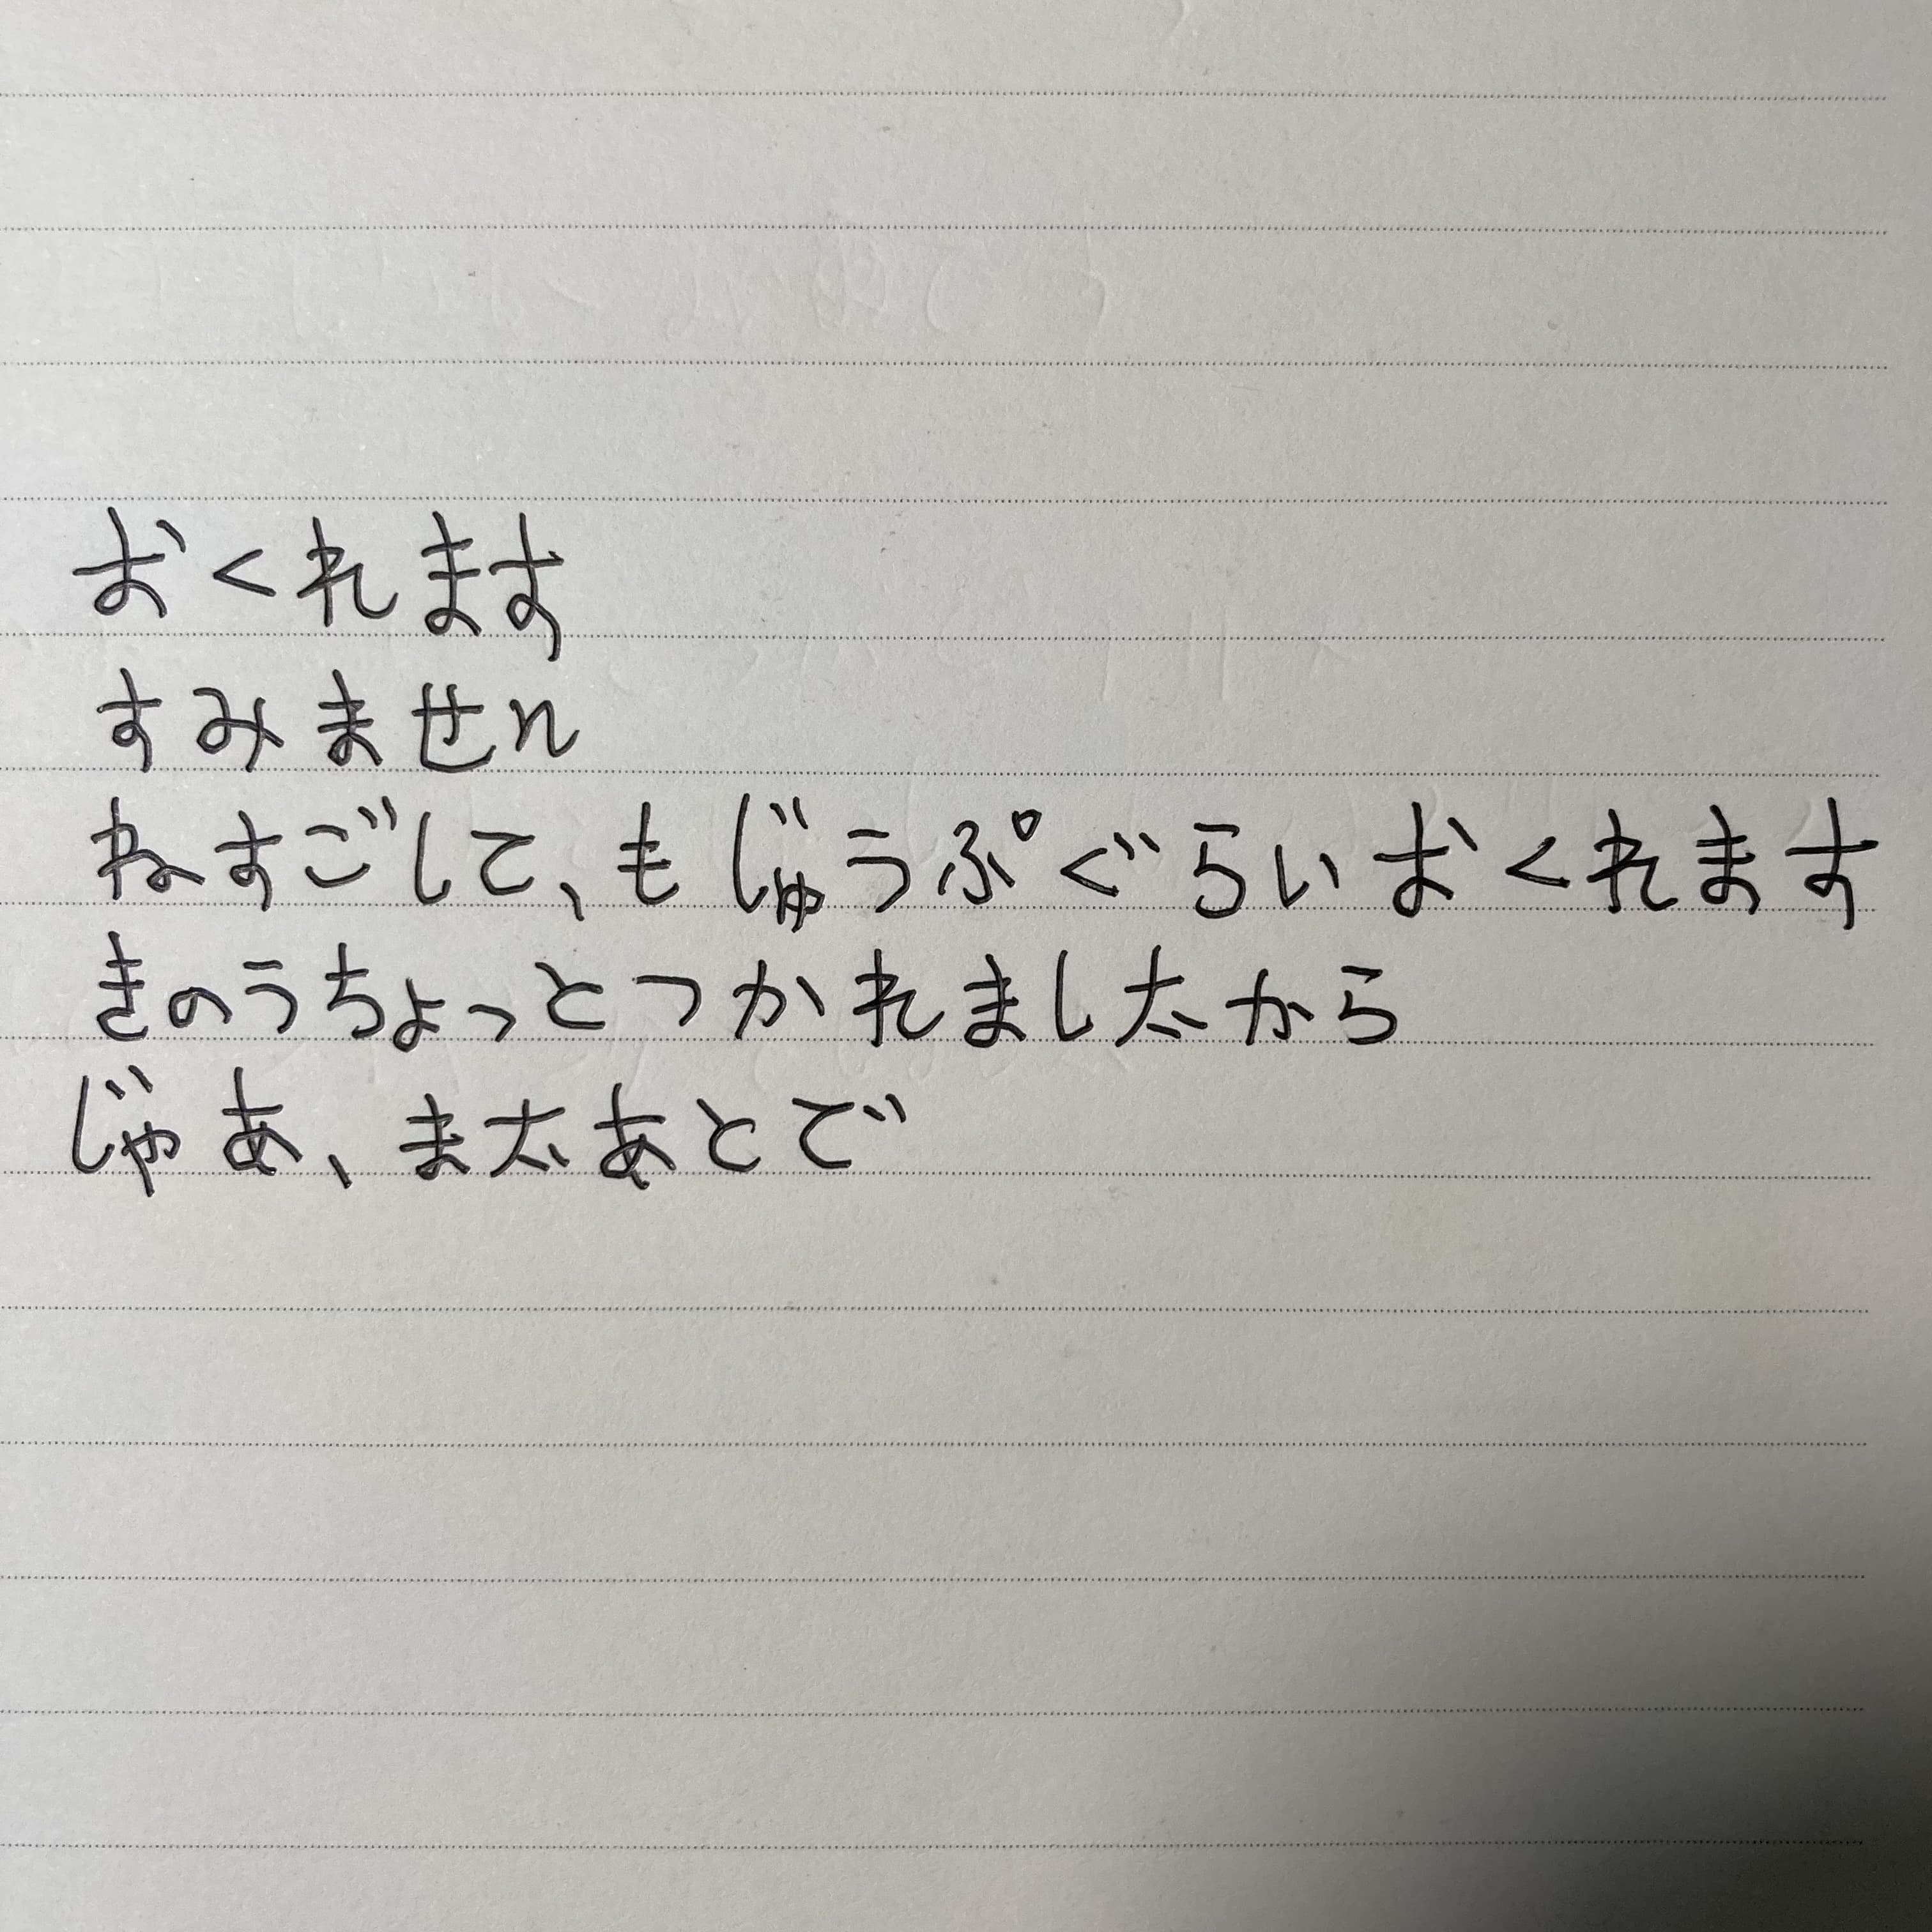 おくれます
すみません
ねすごして、もじゅうぷぐらいおくれます
きのうちょっとつかれまし太から
じゃあ、ま太あとで